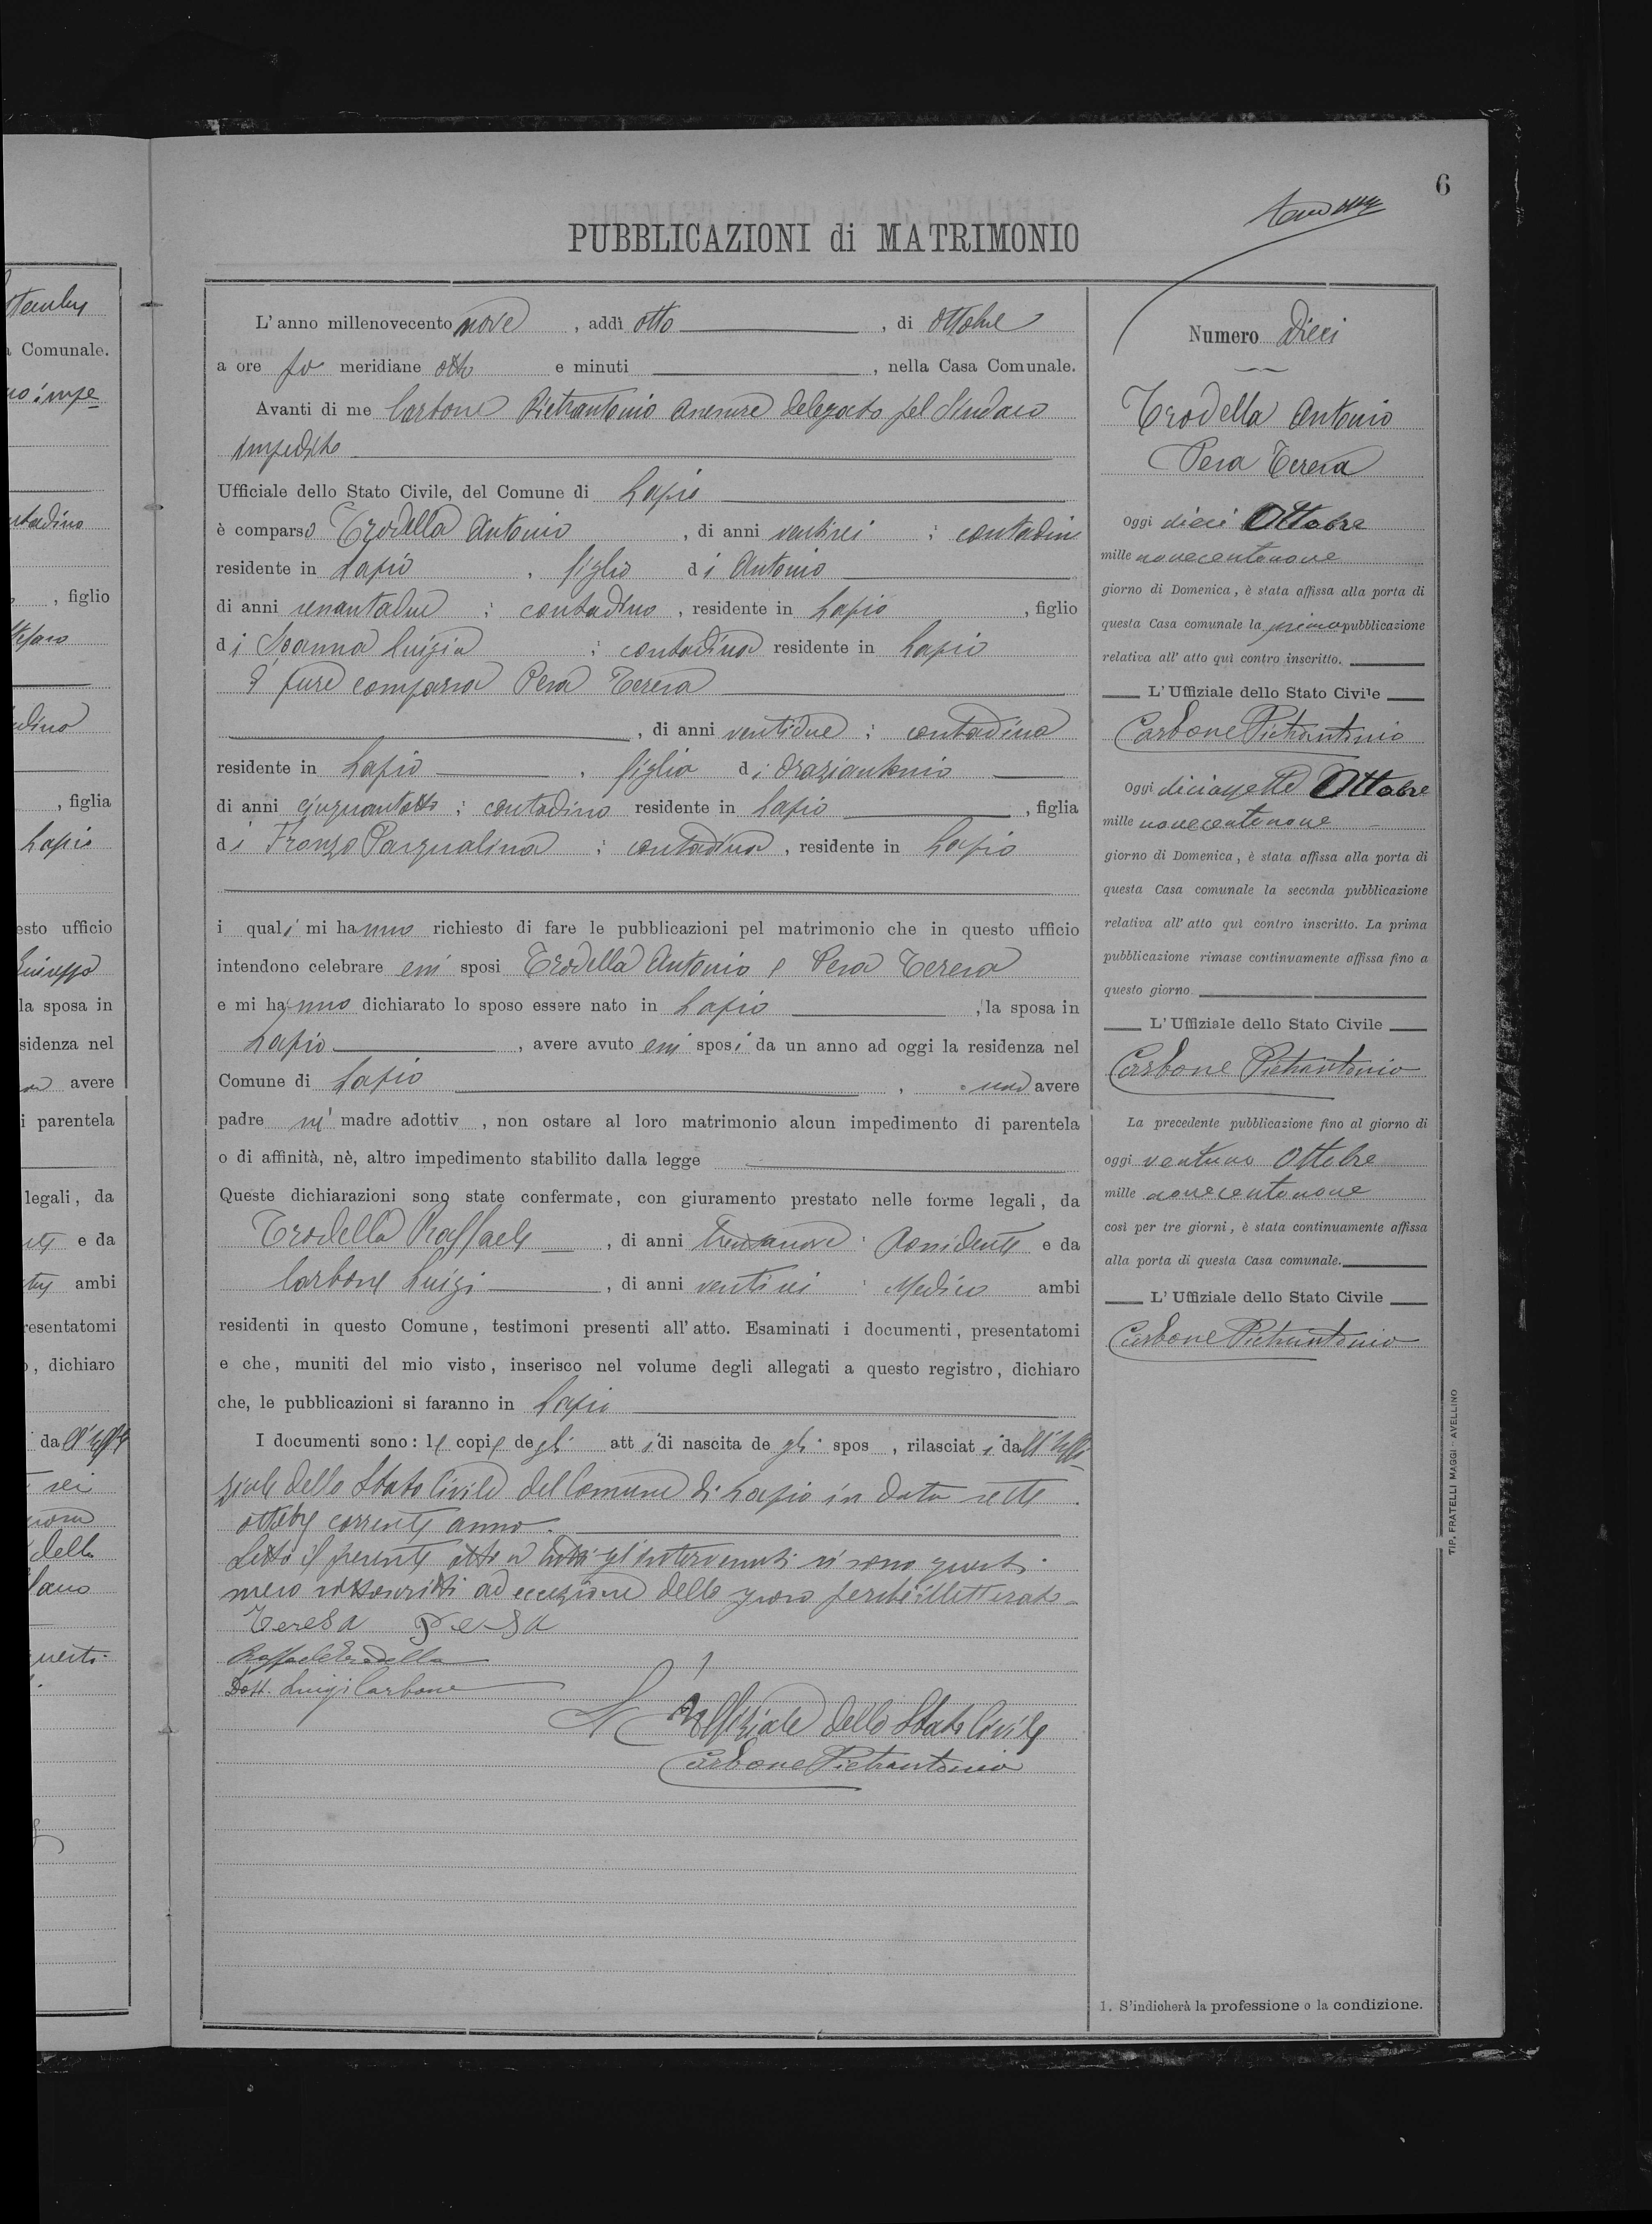 6
PUBBLICAZIONI di MATRIMONIO
L'anno millenovecento nove, addì otto, di Ottobre
a ore po meridiane otto e minuti, nella Casa Comunale.
Avanti di me Carbone Pietrantonio Assessore delegato pel Sindaco
impedito
Ufficiale dello Stato Civile, del Comune di Lapio
è comparso Trodella Antonio, di anni ventisei : contadino
residente in Lapio, figlio di Antonio
di anni sessantadue : contadino, residente in Lapio, figlio
di Luigia : contadina residente in Lapio
È pure comparsa Pesa Teresa
, di anni ventidue : contadina
residente in Lapio, figlia di Oraziantonio
di anni cinquantotto : contadino residente in Lapio, figlia
di Fronzo Pasqualina : contadina, residente in Lapio
i quali mi hanno richiesto di fare le pubblicazioni pel matrimonio che in questo ufficio
intendono celebrare essi sposi Trodella Antonio e Pesa Teresa
e mi hanno dichiarato lo sposo essere nato in Lapio, la sposa in
Lapio, avere avuto essi sposi da un anno ad oggi la residenza nel
Comune di Lapio, non avere
padre nè madre adottiv, non ostare al loro matrimonio alcun impedimento di parentela
o di affinità, nè, altro impedimento stabilito dalla legge
Queste dichiarazioni sono state confermate, con giuramento prestato nelle forme legali, da
Trodella Raffaele, di anni trentanove : Possidente e da
Carbone Luigi, di anni ventisei : Medico ambi
residenti in questo Comune, testimoni presenti all'atto. Esaminati i documenti, presentatomi
e che, muniti del mio visto, inserisco nel volume degli allegati a questo registro, dichiaro
che, le pubblicazioni si faranno in Lapio
I documenti sono: le copie degli atti di nascita de gli spos, rilasciati dall'Uffi-
ziale dello Stato Civile del Comune di Lapio in data sette
ottobre corrente anno.
Letto il presente atto a tutti gl'intervenuti si sono questi
meco sottoscritti ad eccezione dello sposo perchè illetterato-
Teresa Pesa
Raffaele Trodella
Dott. Luigi Carbone
L'Uffiziale dello Stato Civile
Carbone Pietrantonio
Numero Dieci
Trodella Antonio
Pesa Teresa
Oggi dieci Ottobre
mille novecentonove
giorno di Domenica, è stata affissa alla porta di
questa Casa comunale la prima pubblicazione
relativa all'atto quì contro inscritto.
L'Uffiziale dello Stato Civile
Carbone Pietrantonio
Oggi diciassette Ottobre
mille novecentonove
giorno di Domenica, è stata affissa alla porta di
questa Casa comunale la seconda pubblicazione
relativa all'atto quì contro inscritto. La prima
pubblicazione rimase continuamente affissa fino a
questo giorno.
L'Uffiziale dello Stato Civile
Carbone Pietrantonio
La precedente pubblicazione fino al giorno di
oggi ventuno Ottobre
mille novecentonove
così per tre giorni, è stata continuamente affissa
alla porta di questa Casa comunale.
L'Uffiziale dello Stato Civile
Carbone Pietrantonio
1. S'indicherà la professione o la condizione.
TIP. FRATELLI MAGGI - AVELLINO
Comunale.
, figlio
, figlia
Lapio
esto ufficio
la sposa in
sidenza nel
avere
i parentela
legali, da
e da
ambi
resentatomi
, dichiaro
da
sei